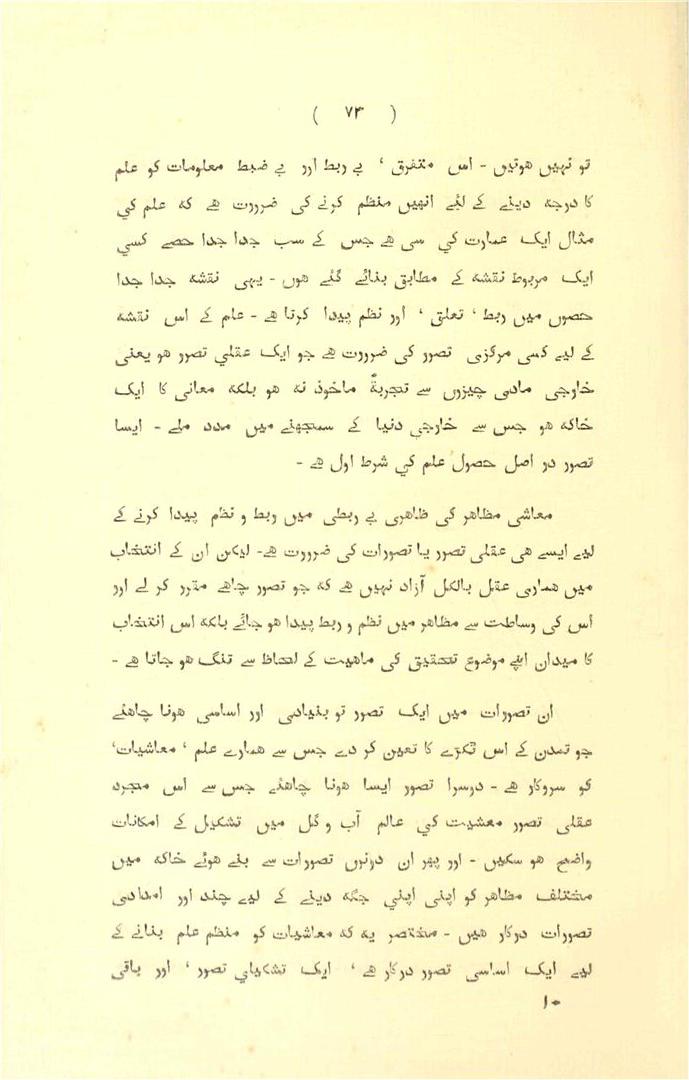 ( ۷۳ )
تو نہیں ہوتیں - اس متفرق ' بے ربط اور بے ضبط معلومات کو علم
کا درجہ دینے کے لئے انہیں منظم کرنے کی ضرورت ہے کہ علم کي
مثال ایک عمارت کي سی ہے جس کے سب جدا جدا حصے کسي
ایک مربوط نقشہ کے مطابق بنائے گئے ہوں - یہی نقشہ جدا جدا
حصوں میں ربط ' تعلق ' اور نظم پیدا کرتا ہے - علم کے اس نقشہ
کے لیے کسی مرکزی تصور کی ضرورت ہے جو ایک عقلي تصور ہو یعنی
خارجی مادی چیزوں سے تجربةً ماخوذ نہ ہو بلکہ معانی کا ایک
خاکہ ہو جس سے خارجي دنیا کے سمجھنے میں مدد ملے - ایسا
تصور در اصل حصول علم کي شرط اول ہے -
معاشی مظاہر کی ظاہری بے ربطی میں ربط و نظم پیدا کرنے کے
لیے ایسے ہی عقلی تصور یا تصورات کی ضرورت ہے - لیکن ان کے انتخاب
میں ہماری عقل بالکل آزاد نہیں ہے کہ جو تصور چاہے مقرر کر لے اور
اس کی وساطت سے مظاہر میں نظم و ربط پیدا ہو جائے بلکہ اس انتخاب
کا میدان اپنے موضوع تحقیق کی ماہیت کے لحاظ سے تنگ ہو جاتا ہے -
ان تصورات میں ایک تصور تو بنیادی اور اساسی ہونا چاہئے
جو تمدن کے اس ٹکڑے کا تعین کر دے جس سے ہمارے علم ' معاشیات'
کو سروکار ہے - دوسرا تصور ایسا ہونا چاہئے جس سے اس مجرد
عقلی تصور معشیت کي عالم آب و گل میں تشکیل کے امکانات
واضح ہو سکیں - اور پھر ان دونوں تصورات سے بنے ہوئے خاکہ میں
مختلف مظاہر کو اپنی اپني جگہ دینے کے لیے چند اور امدادی
تصورات درکار ہیں - مختصر یہ کہ معاشیات کو منظم علم بنانے کے
لیے ایک اساسی تصور درکار ہے ' ایک تشکیلي تصور ' اور باقی
۱۰